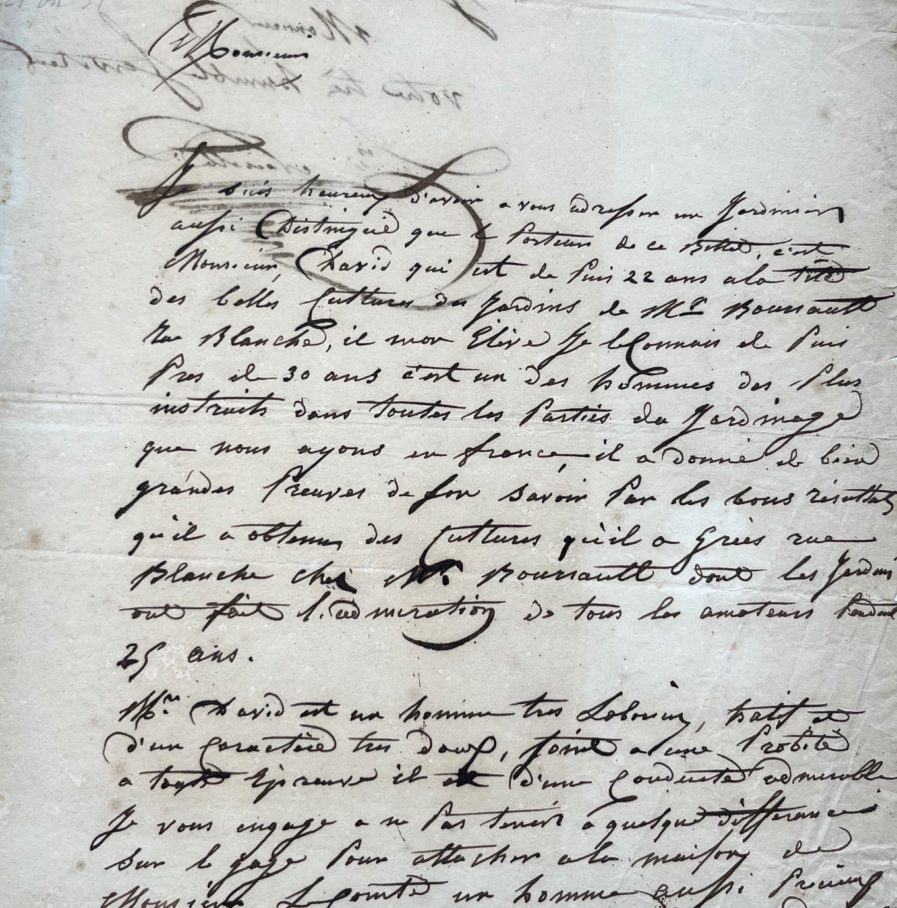 Monsieur
Je suis heureux d'avoir a vous adresser un Jardinier
aussi Distingué que le Porteur de ce Billet, c'est
Monsieur David qui est de Puis 22 ans a la tête
des belles Cultures des Jardins de Mr Boursault
rue Blanche, il mon Elève Je le Connais de Puis
Pres de 30 ans c'est un des hommes des Plus
instruits dans toutes les Parties du Jardinage
que nous ayons en france, il a donné de bien
grandes Preuves de son Savoir Par les bons résultats
qu'il a obtenus des Cultures qu'il a Créés rue
Blanche chez Mr Boursault dont les Jardins
ont fait l'admiration de tous les amateurs Pendant
25 ans.
Mr David est un homme tres Laborieux, et
d'un Caractère tres doux, joint a une Probité
a toute Epreuve il est d'une Conduite admirable
Je vous engage a ne Pas tenir a quelque différence
sur le gage Pour attacher a la maison de
Monsieur Le Comte un homme aussi Précieux